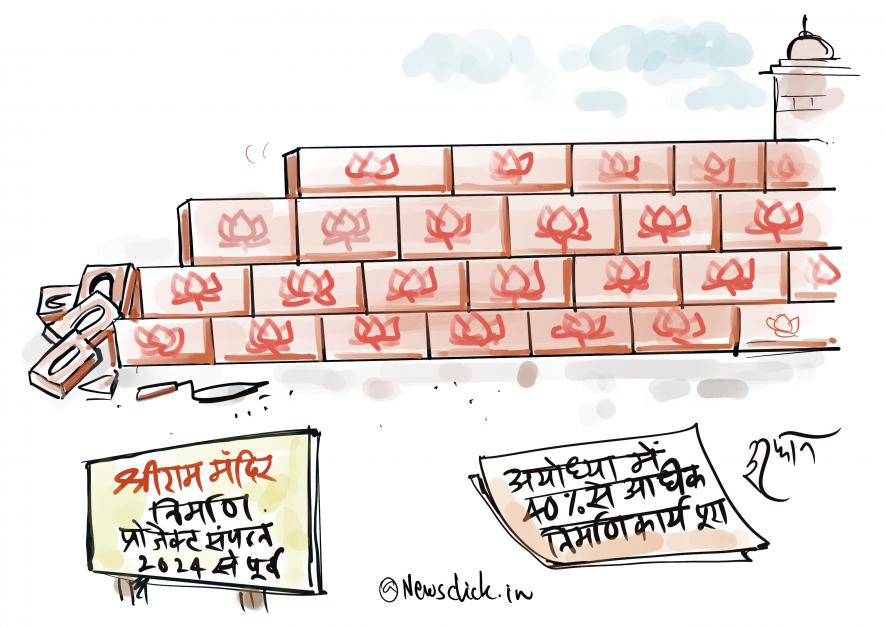 श्रीराम मंदिर
निर्माण
प्रोजेक्ट संपन्न
2024 से पूर्व
अयोध्या में
40% से अधिक
निर्माण कार्य पूरा
इरफान
@Newsclick.in